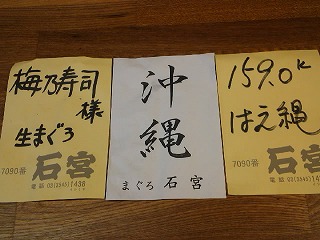 梅乃寿司
様
生まぐろ
7090番
石宮
電話 03(3545)1438
沖縄
まぐろ 石宮
159.0K
はえ縄
7090番
石宮
電話 03(3545)1438